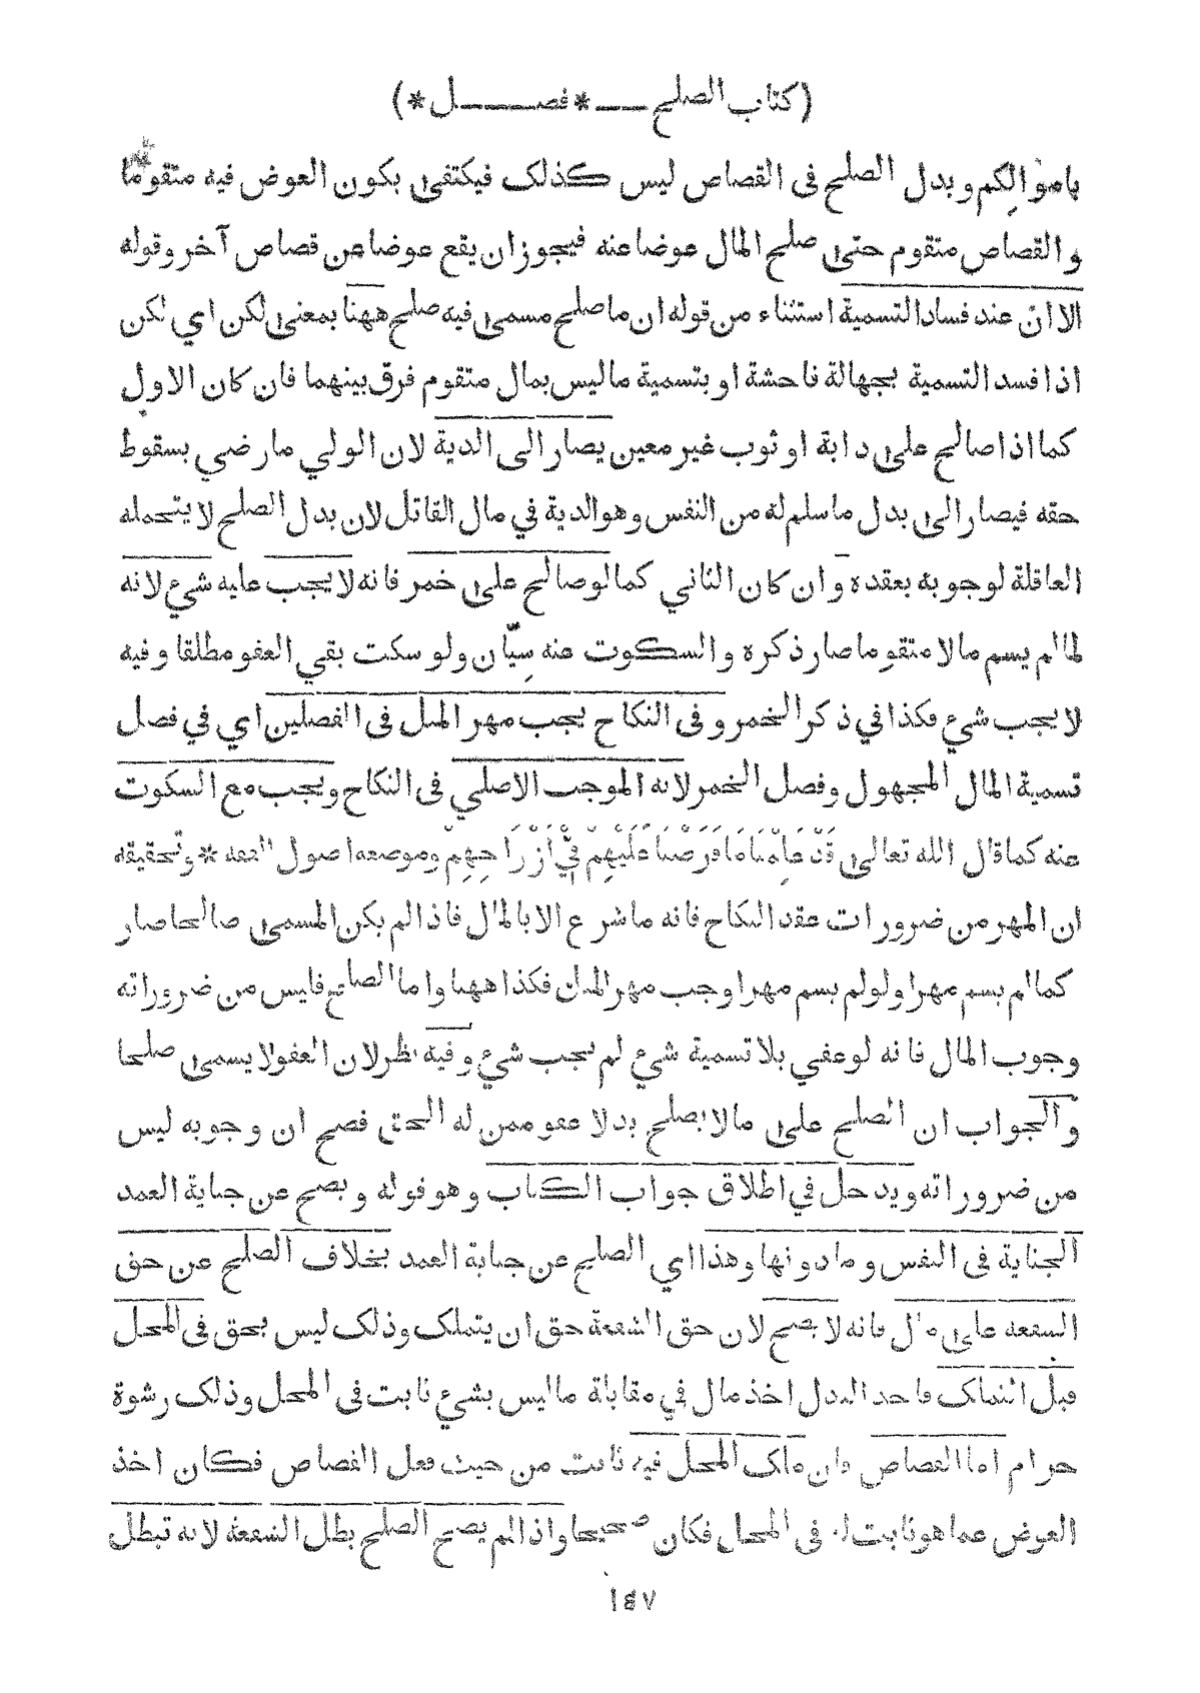 (كتاب الصلح — *فصل*)
باموالكم وبدل الصلح فى القصاص ليس كذلك فيكتفى بكون العوض فيه متقوما
والقصاص متقوم حتى صلح المال عوضا عنه فيجوز ان يقع عوضا عن قصاص آخر وقوله
الا ان عند فساد التسمية استثناء من قوله ان ما صلح مسمى فيه صلح ههنا بمعنى لكن اي لكن
اذا فسد التسمية بجهالة فاحشة او بتسمية ما ليس بمال متقوم فرق بينهما فان كان الاول
كما اذا صالح على دابة او ثوب غير معين يصار الى الدية لان الولي ما رضي بسقوط
حقه فيصار الى بدل ما سلم له من النفس وهو الدية في مال القاتل لان بدل الصلح لا يتحمله
العاقلة لوجوبه بعقده وان كان الثاني كما لو صالح على خمر فانه لا يجب عليه شيء لانه
لما لم يسم مالا متقوما صار ذكره والسكوت عنه سيّان ولو سكت بقي العفو مطلقا وفيه
لا يجب شيء فكذا في ذكر الخمر وفى النكاح يجب مهر المثل فى الفصلين اي في فصل
تسمية المال المجهول وفصل الخمر لانه الموجب الاصلي فى النكاح ويجب مع السكوت
عنه كما قال الله تعالى قَدْ عَلِمْنَا مَا فَرَضْنَا عَلَيْهِمْ فِيْ اَزْوَاجِهِمْ وموضعه اصول الفقه * وتحقيقه
ان المهر من ضرورات عقد النكاح فانه ما شرع الا بالمال فاذا لم يكن المسمى صالحا صار
كما لم يسم مهرا ولو لم يسم مهرا وجب مهر المثل فكذا ههنا واما الصلح فليس من ضروراته
وجوب المال فانه لو عفي بلا تسمية شيء لم يجب شيء وفيه نظر لان العفو لا يسمى صلحا
والجواب ان الصلح على ما لا يصلح بدلا عفو ممن له الحق فصح ان وجوبه ليس
من ضروراته ويدخل في اطلاق جواب الكتاب وهو قوله ويصح عن جناية العمد
الجناية فى النفس وما دونها وهذا اي الصلح عن جناية العمد بخلاف الصلح عن حق
الشفعة على مال فانه لا يصح لان حق الشفعة حق ان يتملك وذلك ليس بحق فى المحل
قبل التملك فاخذ البدل اخذ مال في مقابلة ما ليس بشيء ثابت فى المحل وذلك رشوة
حرام اما القصاص فان ملك المحل فيه ثابت من حيث فعل القصاص فكان اخذ
العوض عما هو ثابت له فى المحل فكان صحيحا واذا لم يصح الصلح بطل الشفعة لانه تبطل
١٤٧